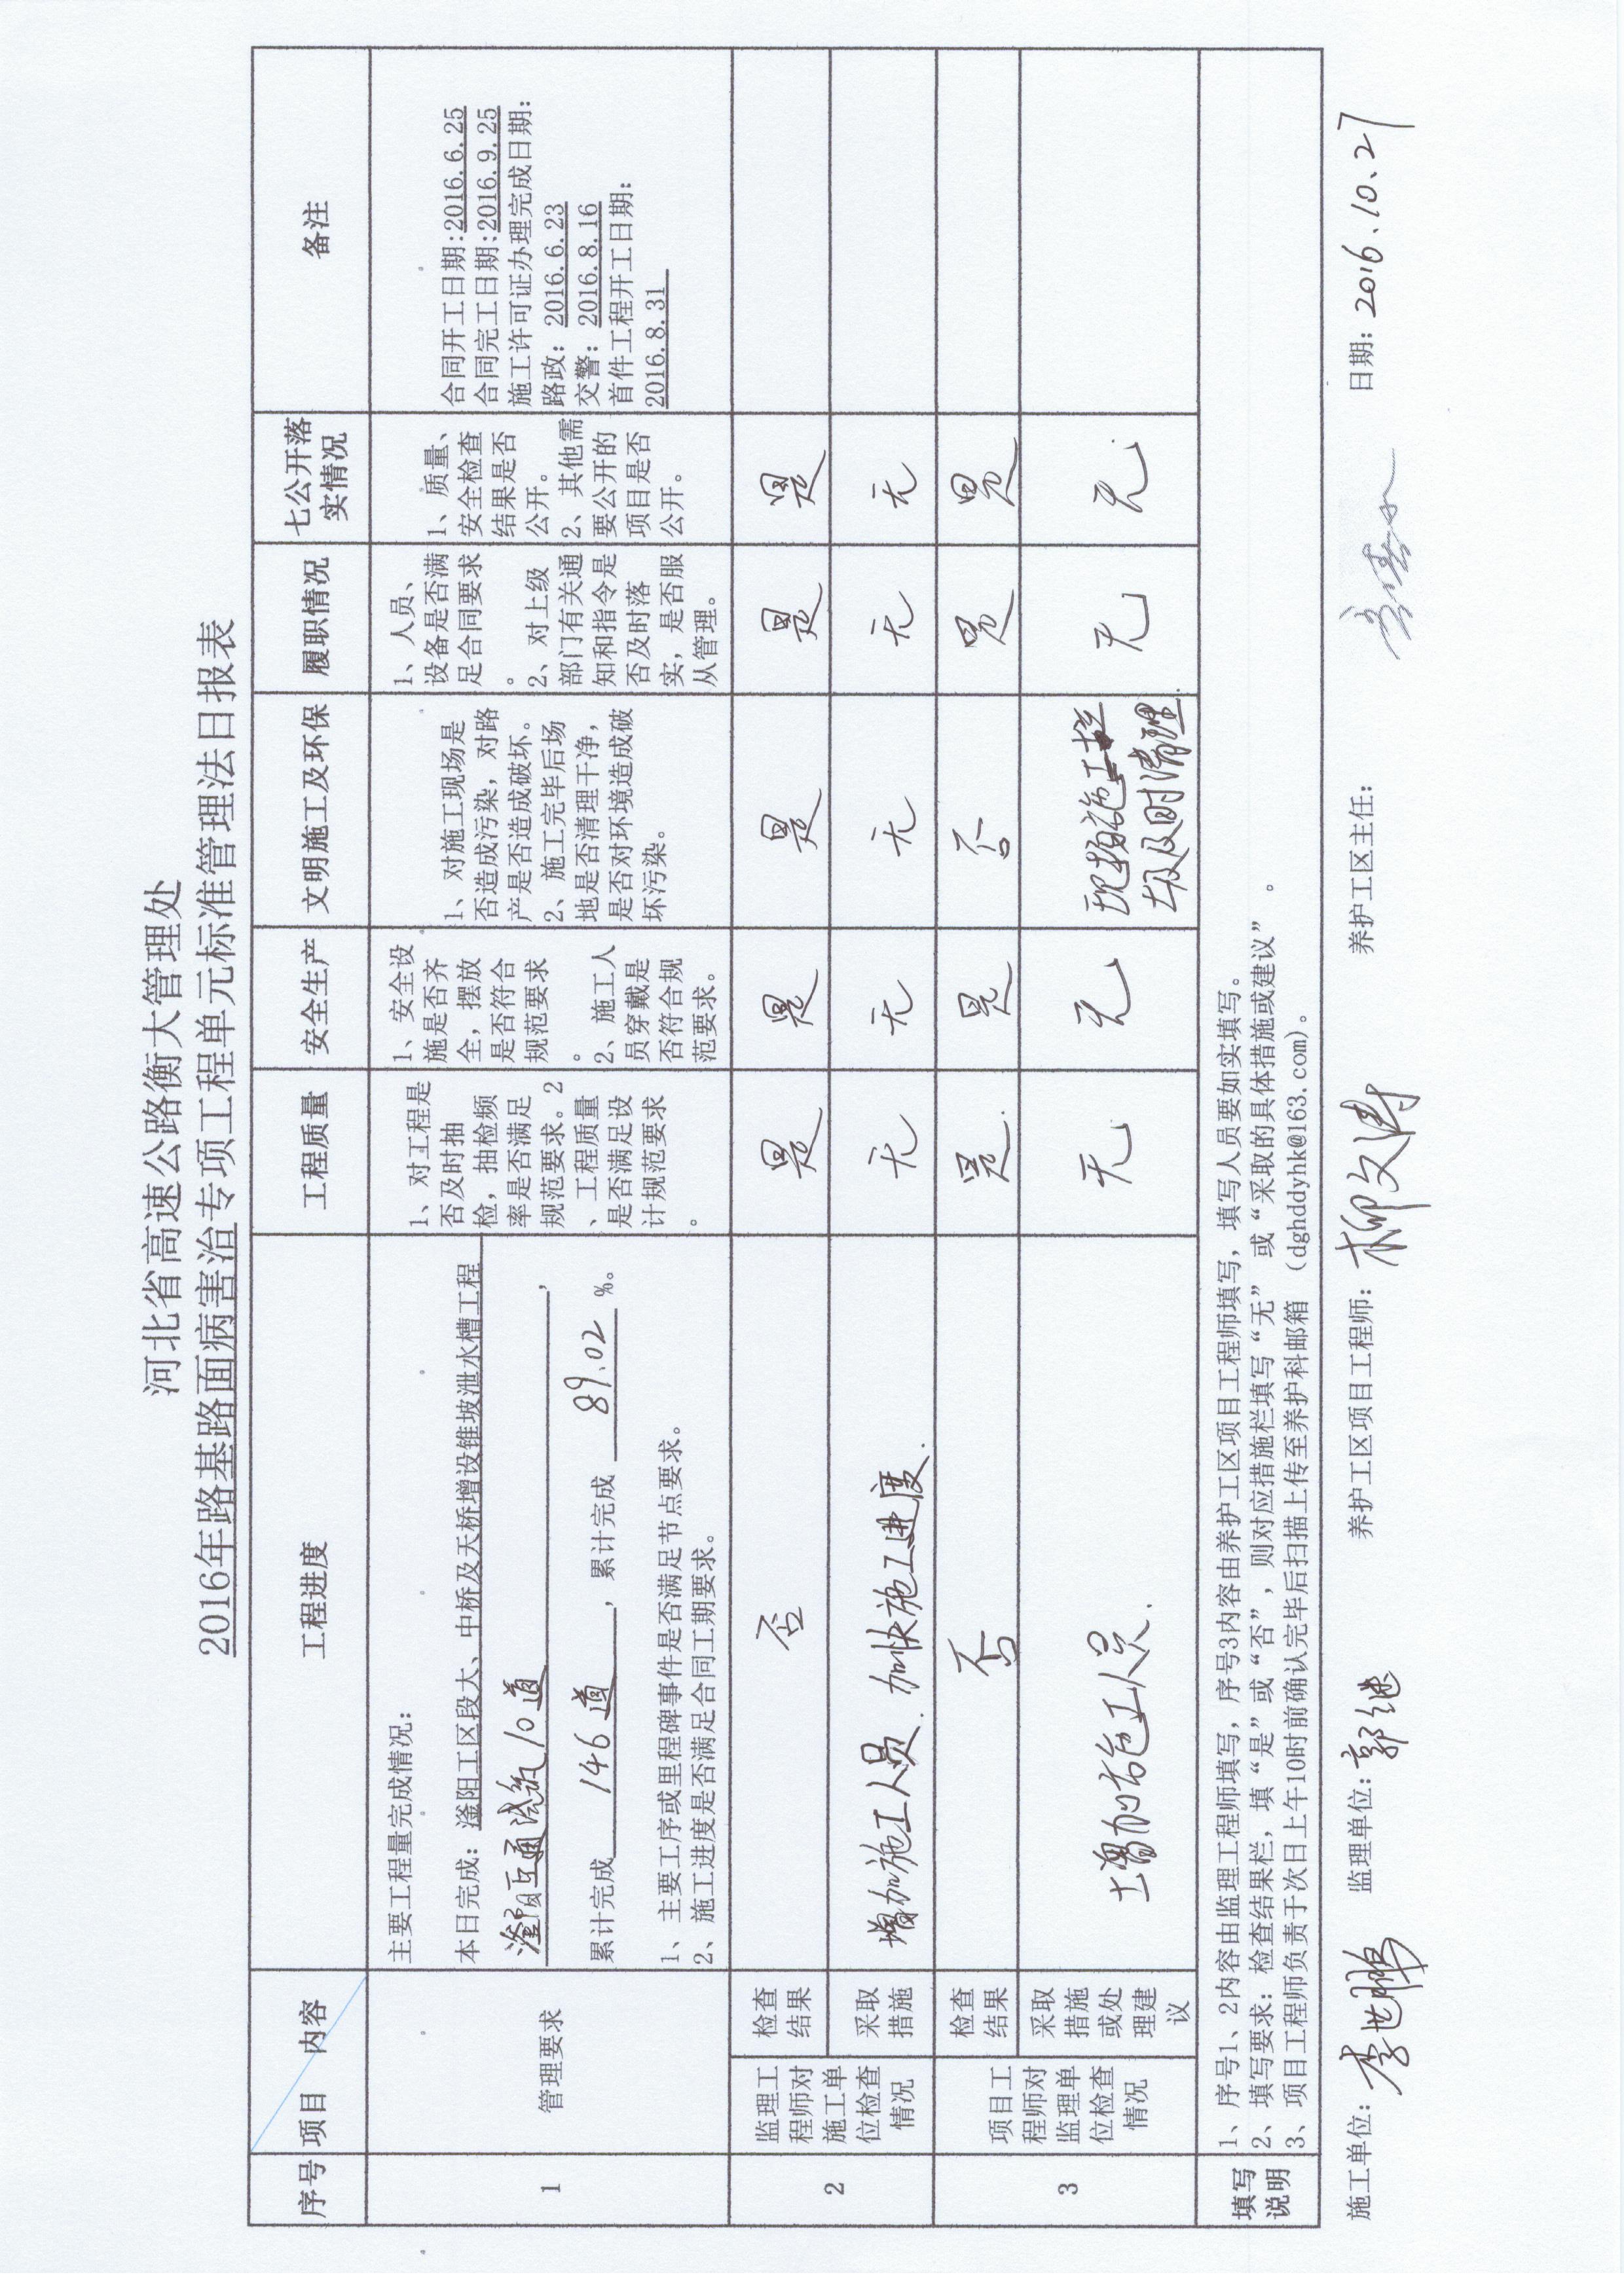 河北省高速公路衡大管理处
2016年路基路面病害治专项工程单元标准管理法日报表
序号
项目 内容
工程进度
工程质量
安全生产
文明施工及环保
履职情况
七公开落
实情况
备注
1
管理要求
主要工程量完成情况:
本日完成: 滏阳工区段大、中桥及天桥增设锥坡泄水槽工程
互通 10道,
累计完成 146道, 累计完成 89.02 %。
1、主要工序或里程碑事件是否满足节点要求。
2、施工进度是否满足合同工期要求。
1、对工程是
否及时抽
检,抽检频
率是否满足
规范要求。2
、工程质量
是否满足设
计规范要求
。
1、安全设
施是否齐
全,摆放
是否符合
规范要求
。
2、施工人
员穿戴是
否符合规
范要求。
1、对施工现场是
否造成污染,对路
产是否造成破坏。
2、施工完毕后场
地是否清理干净,
是否对环境造成破
坏污染。
1、人员、
设备是否满
足合同要求
。
2、对上级
部门有关通
知和指令是
否及时落
实,是否服
从管理。
1、质量、
安全检查
结果是否
公开。
2、其他需
要公开的
项目是否
公开。
合同开工日期:2016.6.25
合同完工日期:2016.9.25
施工许可证办理完成日期:
路政: 2016.6.23
交警: 2016.8.16
首件工程开工日期:
2016.8.31
2
监理工
程师对
施工单
位检查
情况
检查
结果
否
是
是
是
是
是
采取
措施
增加施工人员.加快施工进度.
无
无
无
无
无
3
项目工
程师对
监理单
位检查
情况
检查
结果
否
是.
是
否
是
是
采取
措施
或处
理建
议
增加施工人员.
无
无
及时清理.
无
无
填写
说明
1、序号1、2内容由监理工程师填写,序号3内容由养护工区项目工程师填写,填写人员要如实填写。
2、填写要求:检查结果栏,填“是”或“否”,则对应措施栏填写“无”或“采取的具体措施或建议”。
3、项目工程师负责于次日上午10时前确认完毕后扫描上传至养护科邮箱(dghddyhk@163.com)。
施工单位: 李世鹏 监理单位: 郭继 养护工区项目工程师: 柳文涛 养护工区主任: 日期: 2016.10.27